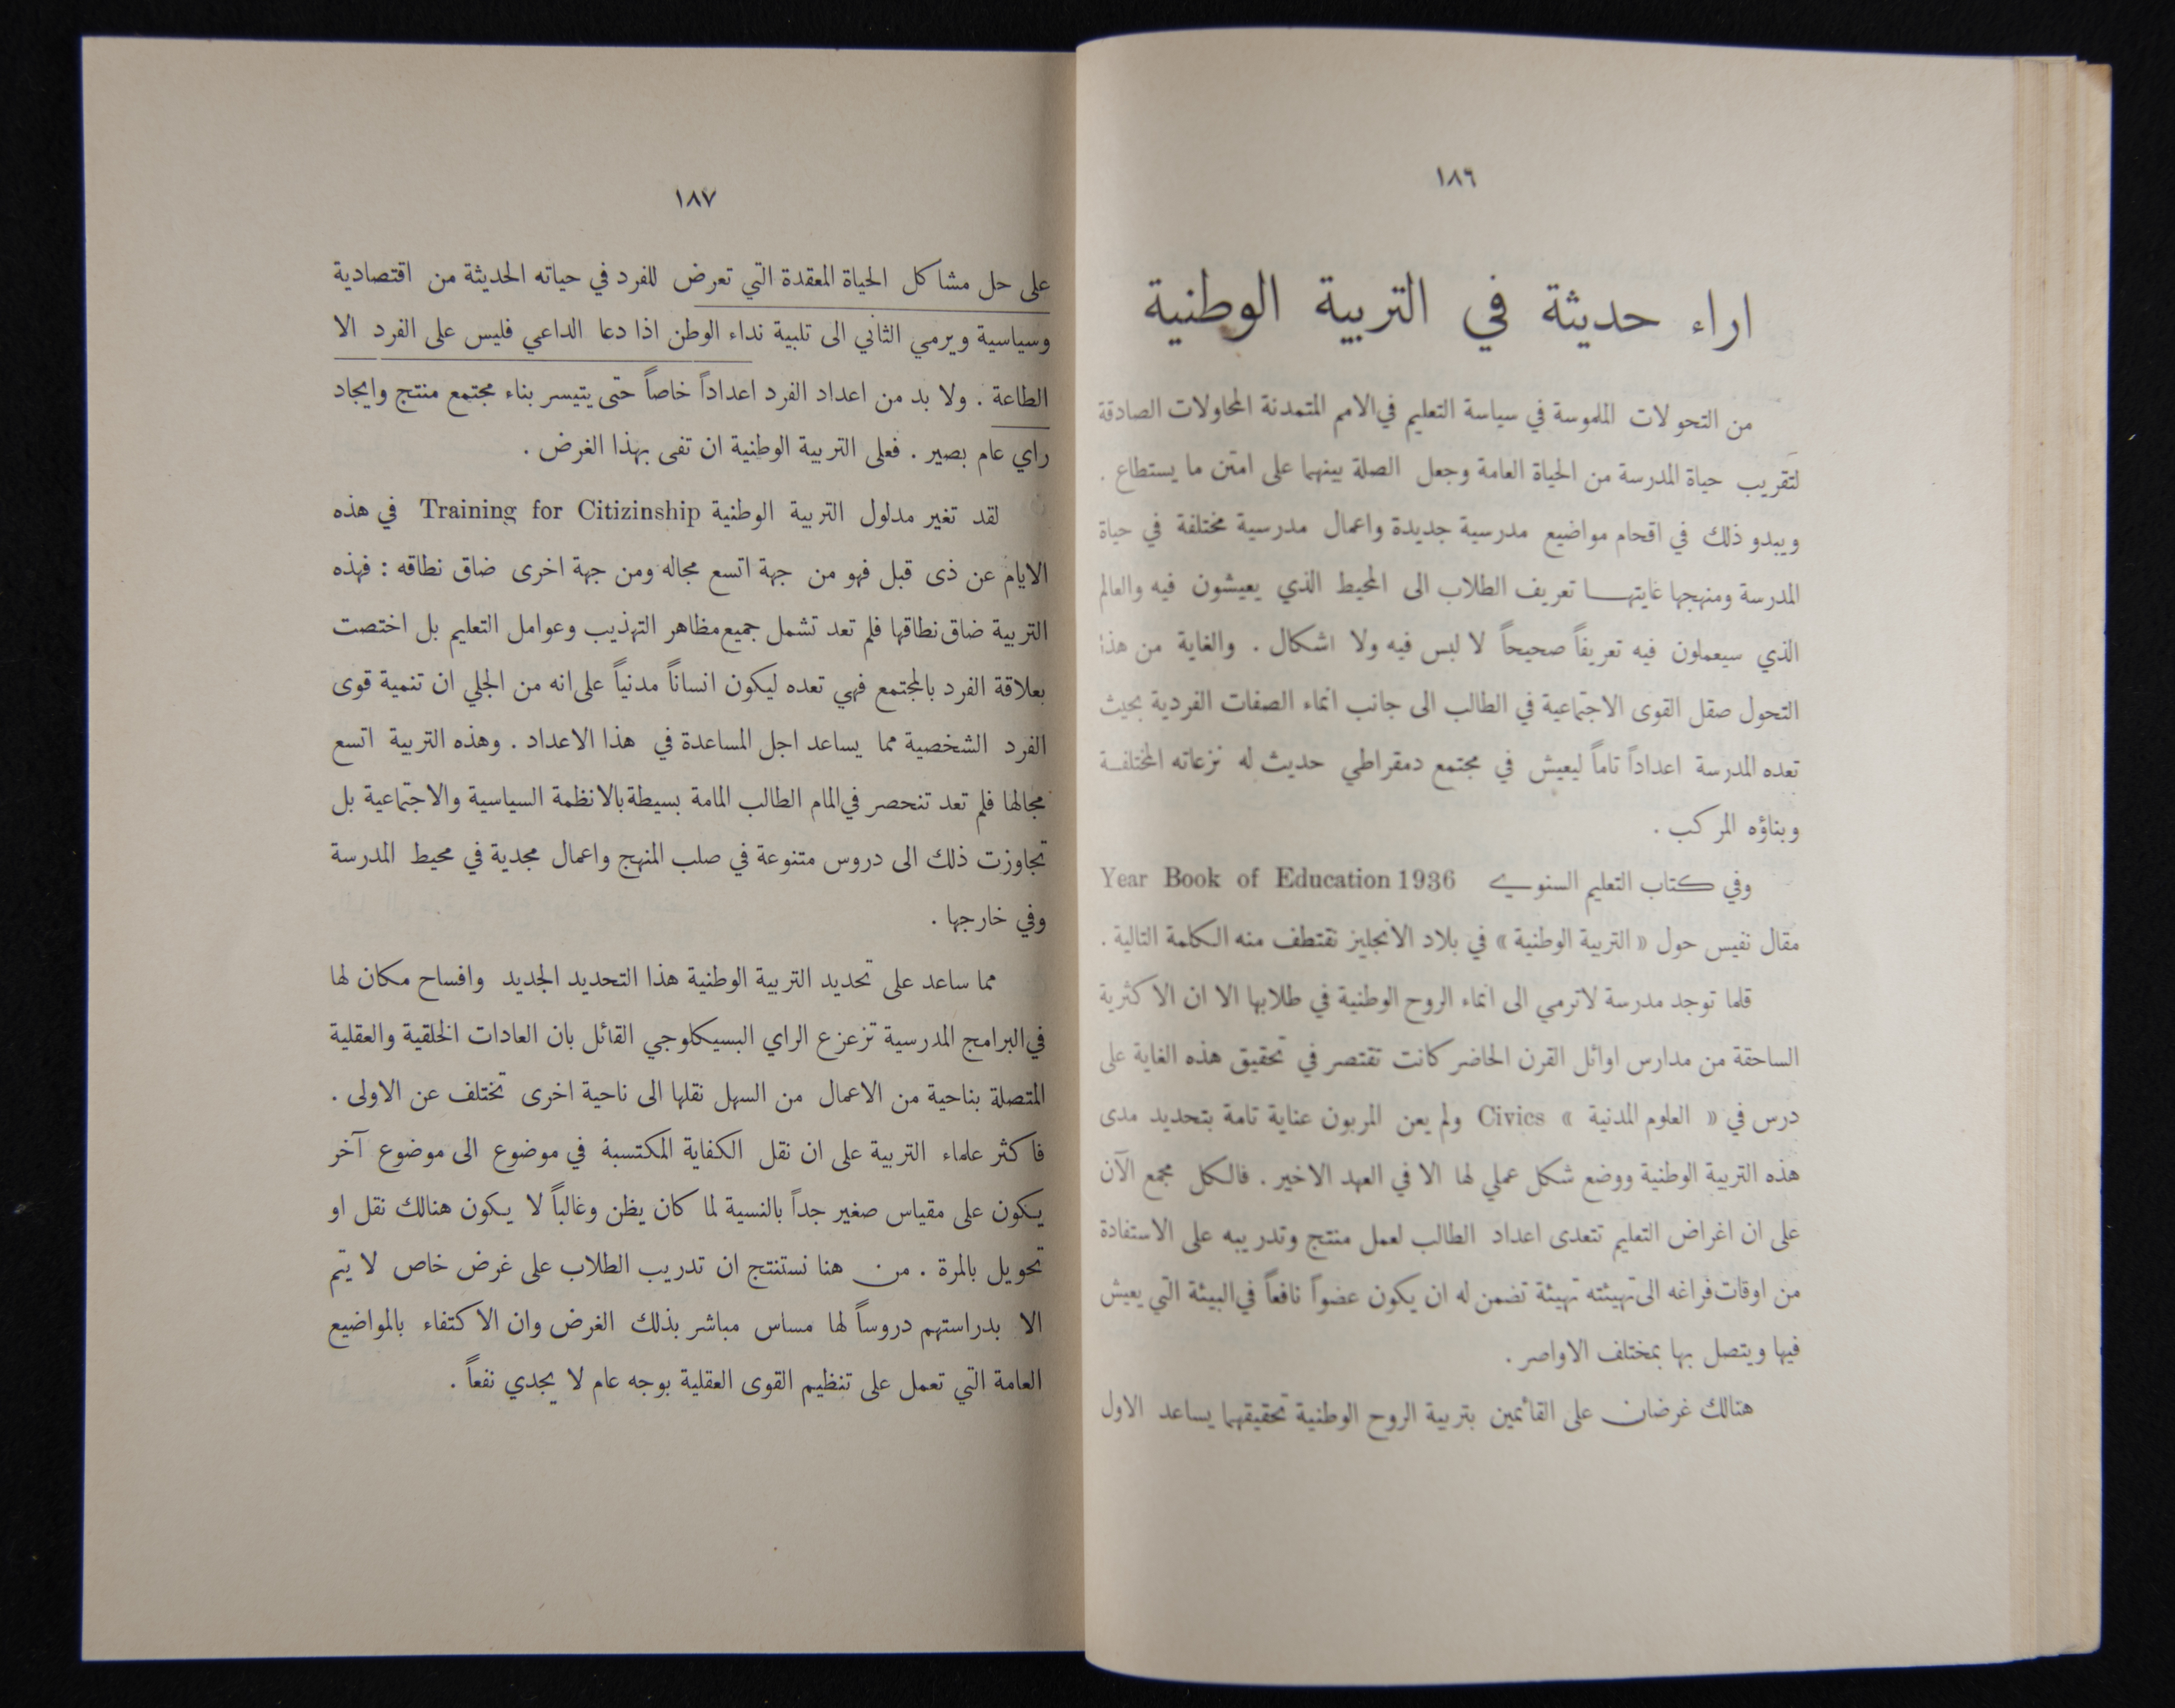 ١٨٦
اراء حديثة في التربية الوطنية
من التحولات الملموسة في سياسة التعليم في الامم المتمدنة المحاولات الصادقة
لتقريب حياة المدرسة من الحياة العامة وجعل الصلة بينهما على امتن ما يستطاع .
ويبدو ذلك في اقحام مواضيع مدرسية جديدة واعمال مدرسية مختلفة في حياة
المدرسة ومنهجها غايتهـــا تعريف الطلاب الى المحيط الذي يعيشون فيه والعالم
الذي سيعملون فيه تعريفاً صحيحاً لا لبس فيه ولا اشكال . والغاية من هذا
التحول صقل القوى الاجتماعية في الطالب الى جانب انماء الصفات الفردية بحيث
تعده المدرسة اعداداً تاماً ليعيش في مجتمع دمقراطي حديث له نزعاته المختلفـة
وبناؤه المركب .
وفي كتاب التعليم السنوي Year Book of Education 1936
مقال نفيس حول « التربية الوطنية » في بلاد الانجليز نقتطف منه الكلمة التالية .
قلما توجد مدرسة لاترمي الى انماء الروح الوطنية في طلابها الا ان الاكثرية
الساحقة من مدارس اوائل القرن الحاضر كانت تقتصر في تحقيق هذه الغاية على
درس في « العلوم المدنية » Civics ولم يعن المربون عناية تامة بتحديد مدى
هذه التربية الوطنية ووضع شكل عملي لها الا في العهد الاخير . فالكل مجمع الآن
على ان اغراض التعليم تتعدى اعداد الطالب لعمل منتج وتدريبه على الاستفادة
من اوقات فراغه الى تهيئته تهيئة تضمن له ان يكون عضواً نافعاً في البيئة التي يعيش
فيها ويتصل بها بمختلف الاواصر .
هنالك غرضان على القائمين بتربية الروح الوطنية تحقيقهما يساعد الاول
١٨٧
على حل مشاكل الحياة المعقدة التي تعرض للفرد في حياته الحديثة من اقتصادية
وسياسية ويرمي الثاني الى تلبية نداء الوطن اذا دعا الداعي فليس على الفرد الا
الطاعة . ولا بد من اعداد الفرد اعداداً خاصاً حتى يتيسر بناء مجتمع منتج وايجاد
راي عام بصير . فعلى التربية الوطنية ان تفى بهذا الغرض .
لقد تغير مدلول التربية الوطنية Training for Citizinship في هذه
الايام عن ذى قبل فهو من جهة اتسع مجاله ومن جهة اخرى ضاق نطاقه : فهذه
التربية ضاق نطاقها فلم تعد تشمل جميع مظاهر التهذيب وعوامل التعليم بل اختصت
بعلاقة الفرد بالمجتمع فهي تعده ليكون انساناً مدنياً على انه من الجلي ان تنمية قوى
الفرد الشخصية مما يساعد اجل المساعدة في هذا الاعداد . وهذه التربية اتسع
مجالها فلم تعد تنحصر في المام الطالب المامة بسيطة بالانظمة السياسية والاجتماعية بل
تجاوزت ذلك الى دروس متنوعة في صلب المنهج واعمال مجدية في محيط المدرسة
وفي خارجها .
مما ساعد على تحديد التربية الوطنية هذا التحديد الجديد وافساح مكان لها
في البرامج المدرسية تزعزع الراي البسيكلوجي القائل بان العادات الخلقية والعقلية
المتصلة بناحية من الاعمال من السهل نقلها الى ناحية اخرى تختلف عن الاولى .
فاكثر علماء التربية على ان نقل الكفاية المكتسبة في موضوع الى موضوع آخر
يكون على مقياس صغير جداً بالنسية لما كان يظن وغالباً لا يكون هنالك نقل او
تحويل بالمرة . من هنا نستنتج ان تدريب الطلاب على غرض خاص لا يتم
الا بدراستهم دروساً لها مساس مباشر بذلك الغرض وان الاكتفاء بالمواضيع
العامة التي تعمل على تنظيم القوى العقلية بوجه عام لا يجدي نفعاً .